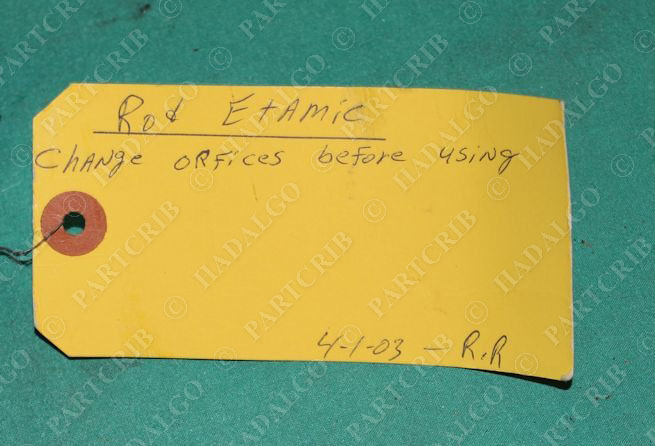 Rod EtAmic
Change ORfices before using
4-1-03 - R.R
© PARTCRIB
© HADALGO